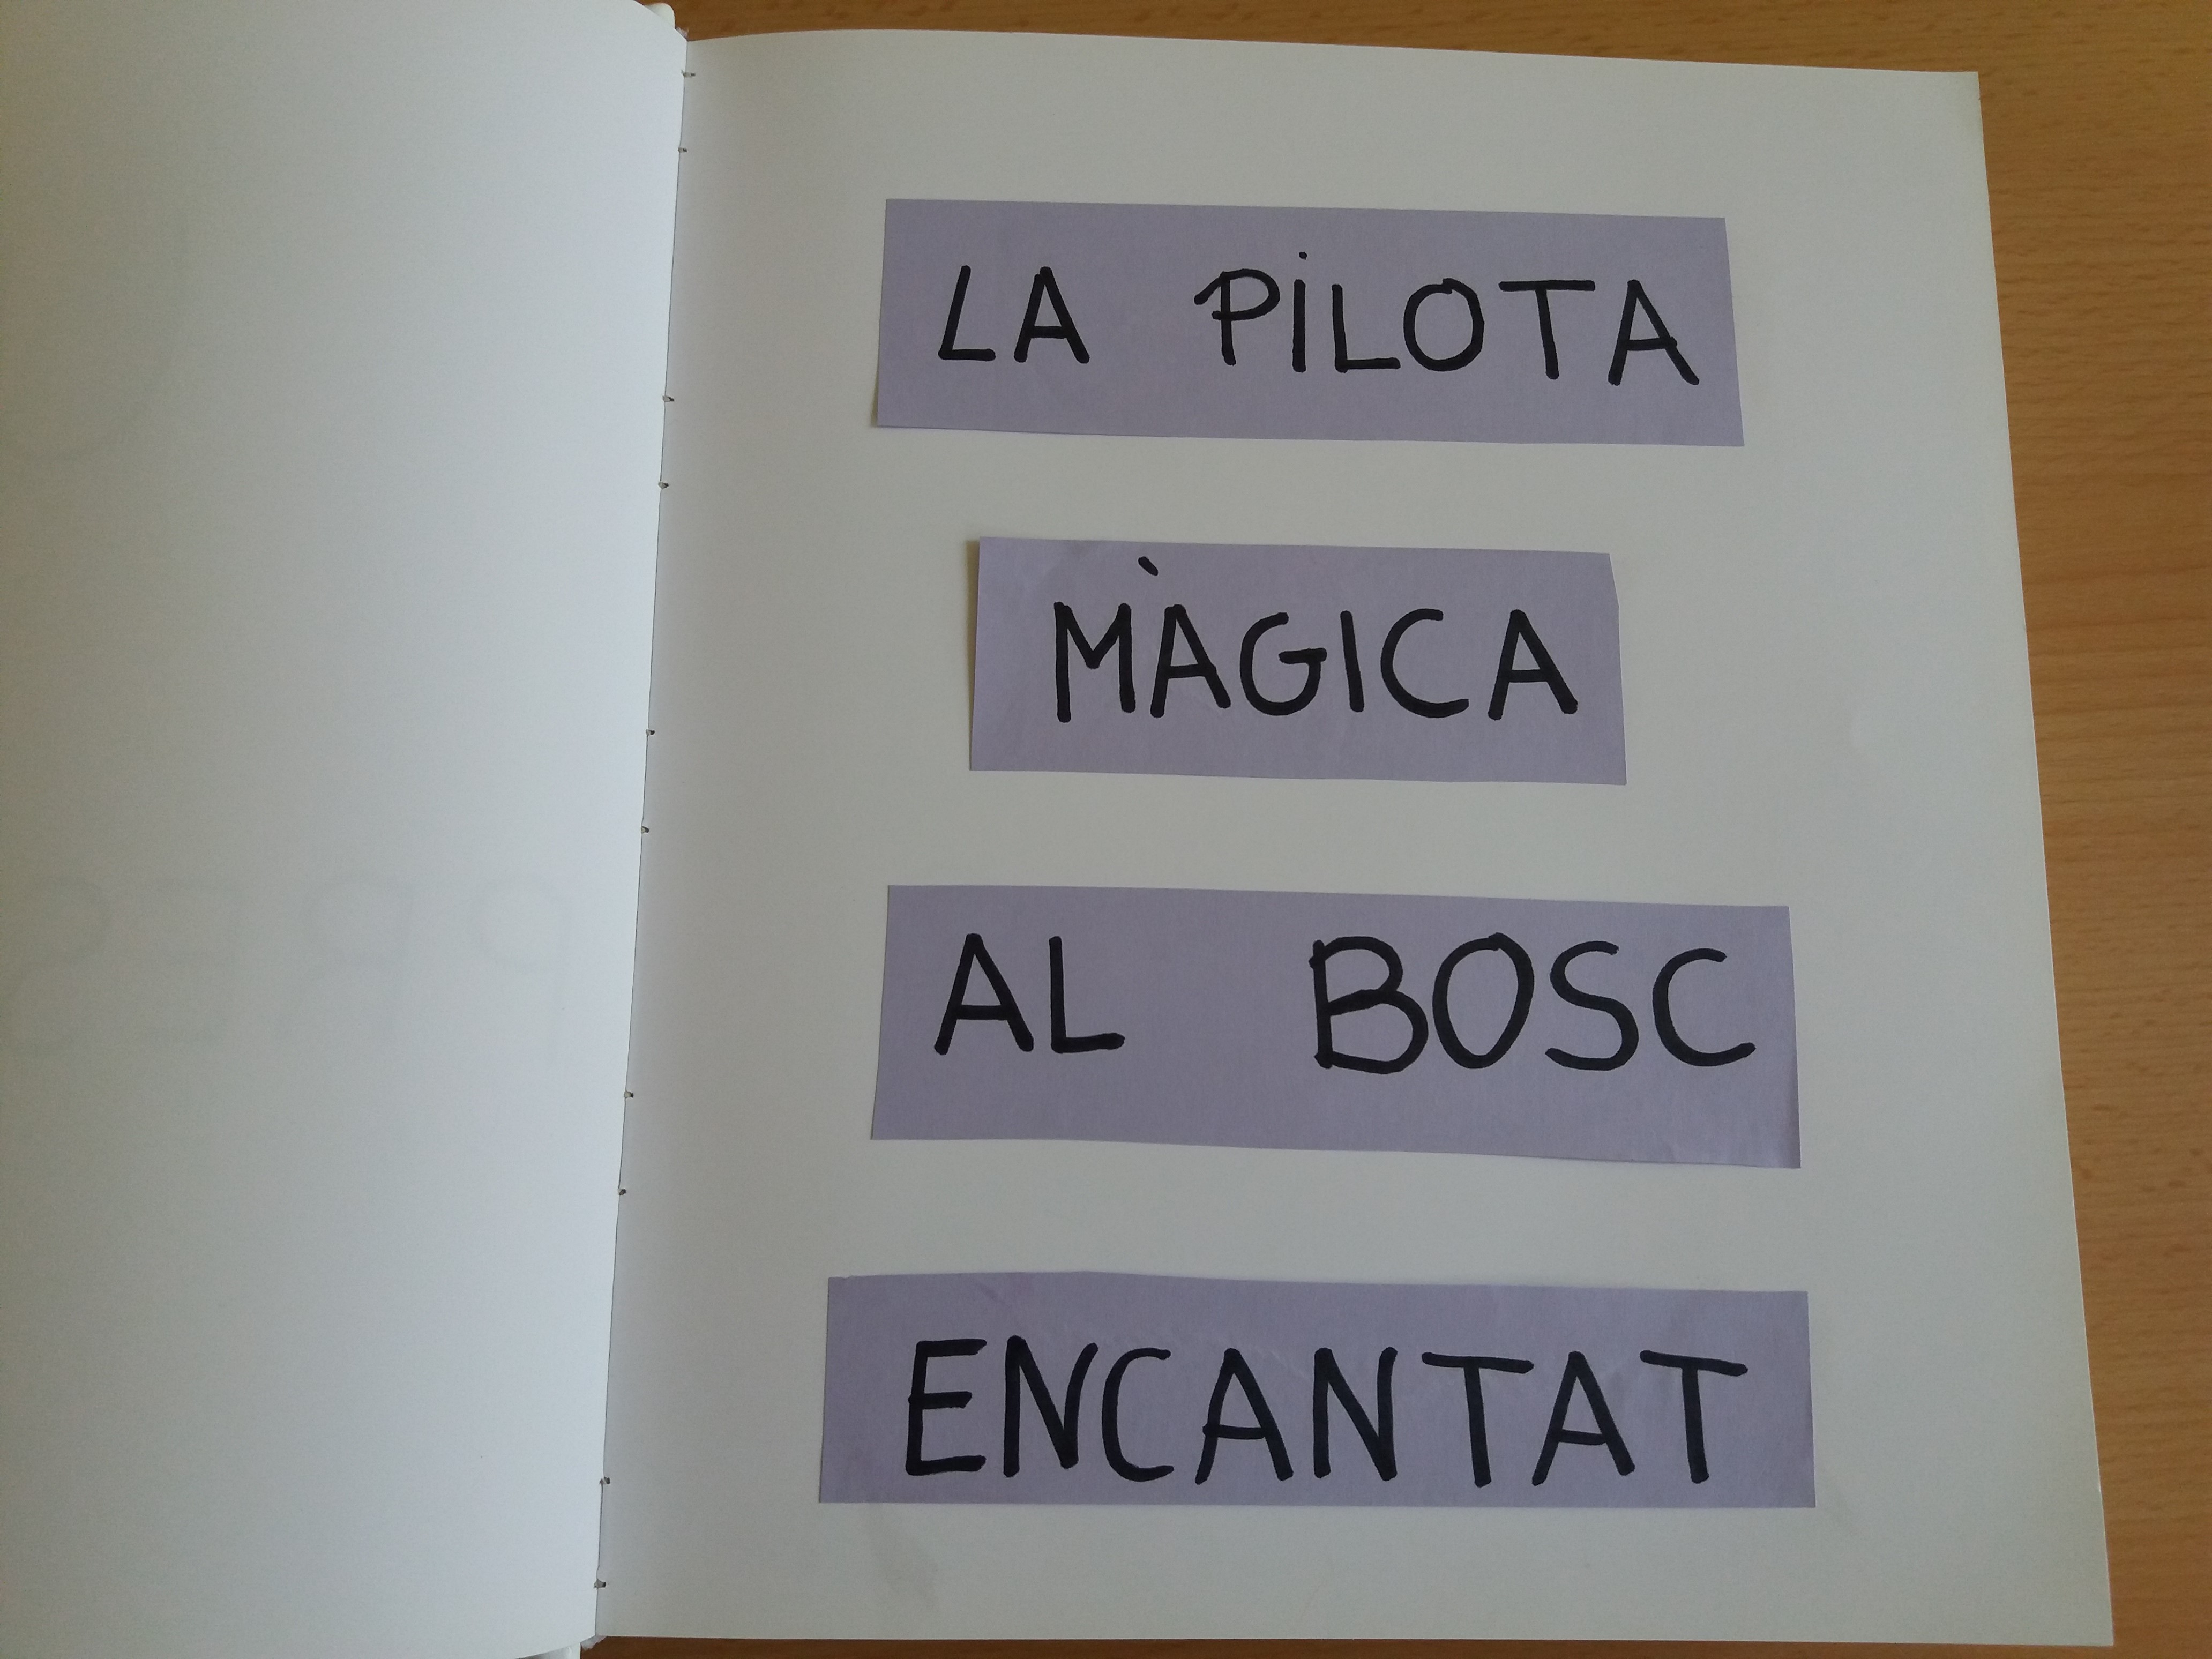 LA PiLOTA
MÀGICA
AL BOSC
ENCANTAT